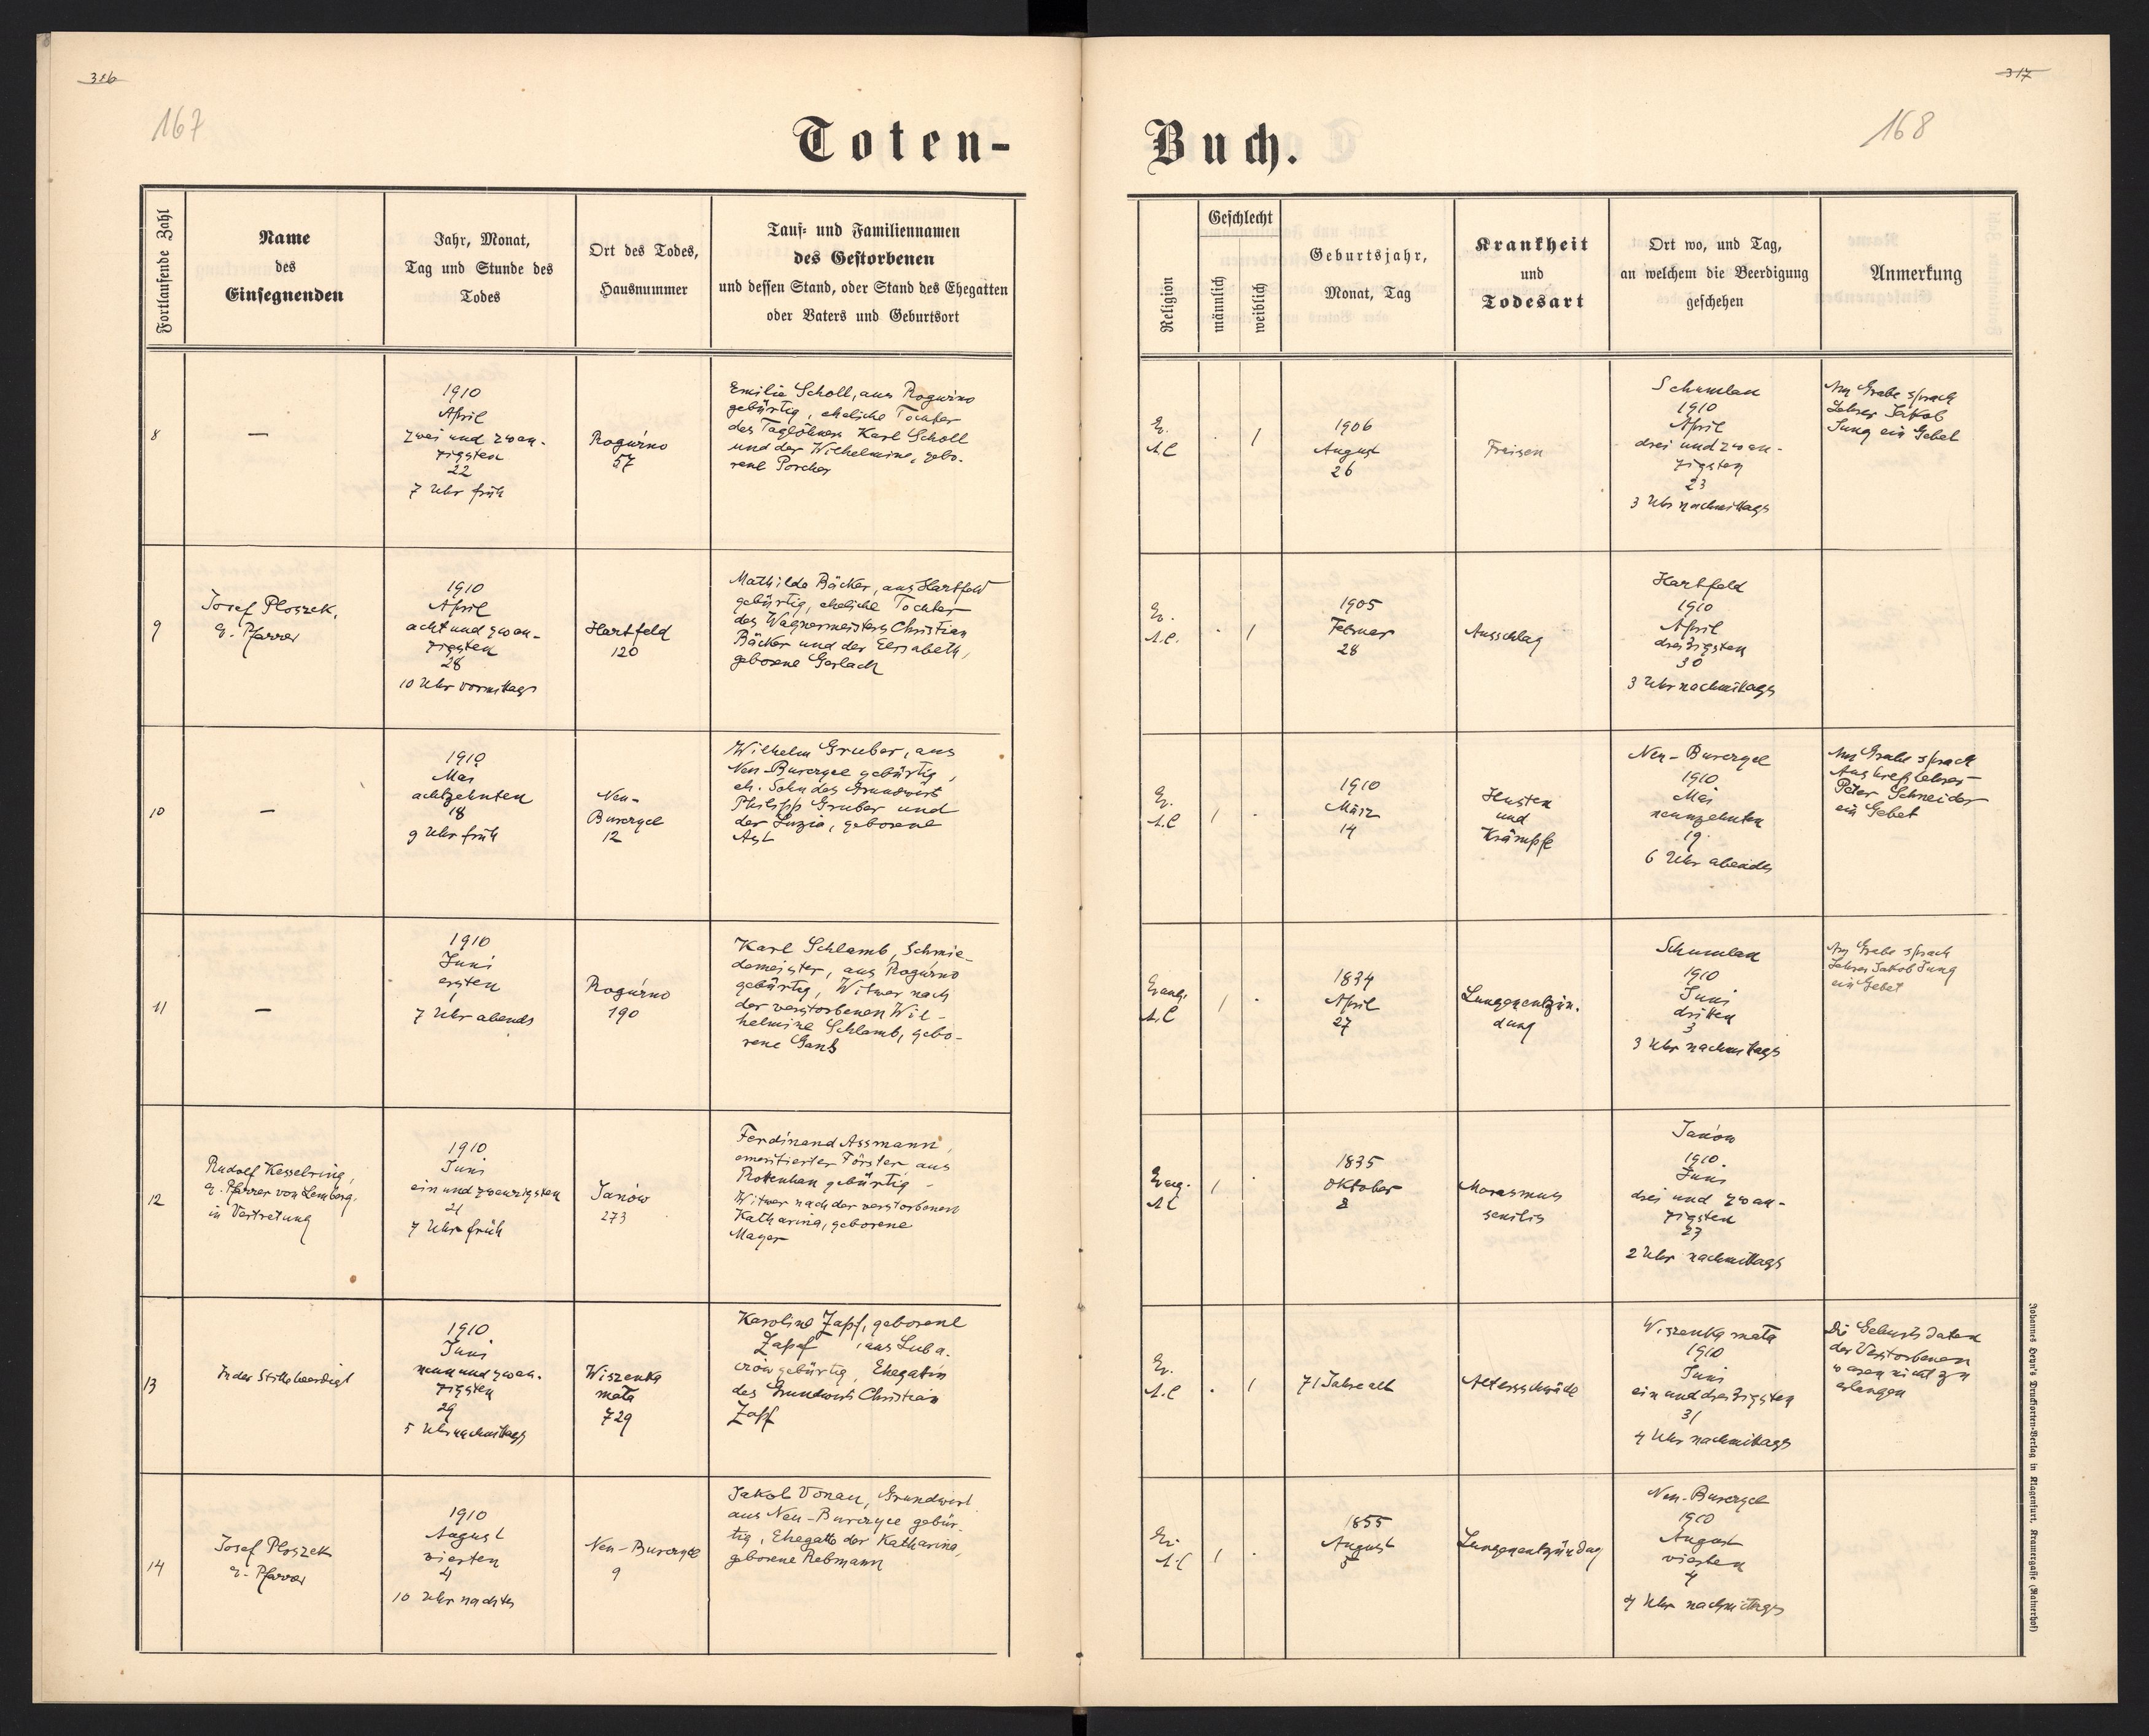 316
167
Toten-
Fortlaufende Zahl
Name
des
Einsegnenden
Jahr, Monat,
Tag und Stunde des
Todes
Ort des Todes,
Hausnummer
Tauf- und Familiennamen
des Gestorbenen
und dessen Stand, oder Stand des Ehegatten
oder Vaters und Geburtsort
8
—
1910
April
zwei und zwan-
zigsten
22
7 Uhr früh
Rogúzno
57
Emilie Scholl, aus Rogúzno
gebürtig, eheliche Tochter
des Taglöhners Karl Scholl
und der Wilhelmine, gebo-
rene Porcher
9
Josef Ploszek,
ev. Pfarrer
1910
April
acht und zwan-
zigsten
28
10 Uhr vormittags
Hartfeld
120
Mathilde Bäcker, aus Hartfeld
gebürtig, eheliche Tochter
des Wagnermeisters Christian
Bäcker und der Elisabeth,
geborene Gerlach
10
—
1910
Mai
achtzehnten
18
9 Uhr früh
Neu-
Burczyce
12
Wilhelm Gruber, aus
Neu-Burczyce gebürtig,
eh. Sohn des Grundwirt
Philipp Gruber und
der Luzia, geborene
11
—
1910
Juni
ersten
1
7 Uhr abends
Rogúzno
190
Karl Schlamb, Schmie-
demeister, aus Rogúzno
gebürtig, Witwer nach
der verstorbenen Wil-
helmine Schlamb, gebo-
rene
12
Rudolf Kesselring,
ev. Pfarrer von Lemberg,
in Vertretung
1910
Juni
ein und zwanzigsten
21
7 Uhr früh
Janów
273
Ferdinand Assmann,
emeritierter Förster, aus
Rottenhan gebürtig
Witwer nach der verstorbenen
Katharina, geborene
Mayer
13
In der Stille beerdigt
1910
Juni
neun und zwan-
zigsten
29
5 Uhr nachmittags
Wiszenka
mała
729
Karoline Zapf, geborene
Zapf, aus Luba-
czów gebürtig, Ehegatin
des Grundwirts Christian
Zapf
14
Josef Ploszek
ev. Pfarrer
1910
August
vierten
4
10 Uhr nachts
Neu-Burczyce
9
Jakob Vonau, Grundwirt
aus Neu-Burczyce gebür-
tig, Ehegatte der Katharina,
geborene Rebmann
317
168
Buch.
Religion
Geschlecht
männlich
weiblich
Geburtsjahr,
Monat, Tag
Krankheit
und
Todesart
Ort wo, und Tag,
an welchem die Beerdigung
geschehen
Anmerkung
Ev.
A.C
1
1906
August
26
Fraisen
Schumlau
1910
April
drei und zwan-
zigsten
23
3 Uhr nachmittags
Am Grabe sprach
Lehrer Jakob
Jung ein Gebet
Ev.
A.C.
1
1905
Februar
28
Ausschlag
Hartfeld
1910
April
dreißigsten
30
3 Uhr nachmittags
Ev.
A.C
1
1910
März
14
Husten
und
Krämpfe
Neu-Burczyce
1910
Mai
neunzehnten
19.
6 Uhr abends
Am Grabe sprach
Aushilfslehrer
Peter Schneider
ein Gebet
Evang.
A.C
1
1834
April
27
Lungenentzün-
dung
Schumlau
1910
Juni
dritten
3
3 Uhr nachmittags
Am Grabe sprach
Lehrer Jakob Jung
ein Gebet
Evag.
A.C
1
1835
Oktober
8
Marasmus
senilis
Janów
1910.
Juni
drei und zwan-
zigsten
23
2 Uhr nachmittags
Ev.
A.C
1
71 Jahre alt
Altersschwäche
Wiszenka mała
1910
Juni
ein und dreißigsten
31
4 Uhr nachmittags
Die Geburtsdaten
der Verstorbenen
waren nicht zu
erlangen
Ev.
A.C
1
1855
August
5
Lungenentzündug
Neu-Burczyce
1910
August
vierten
4
4 Uhr nachmittags
Johannes Heyn's Drucksorten-Verlag in Klagenfurt, Kramergasse (Rainerhof)